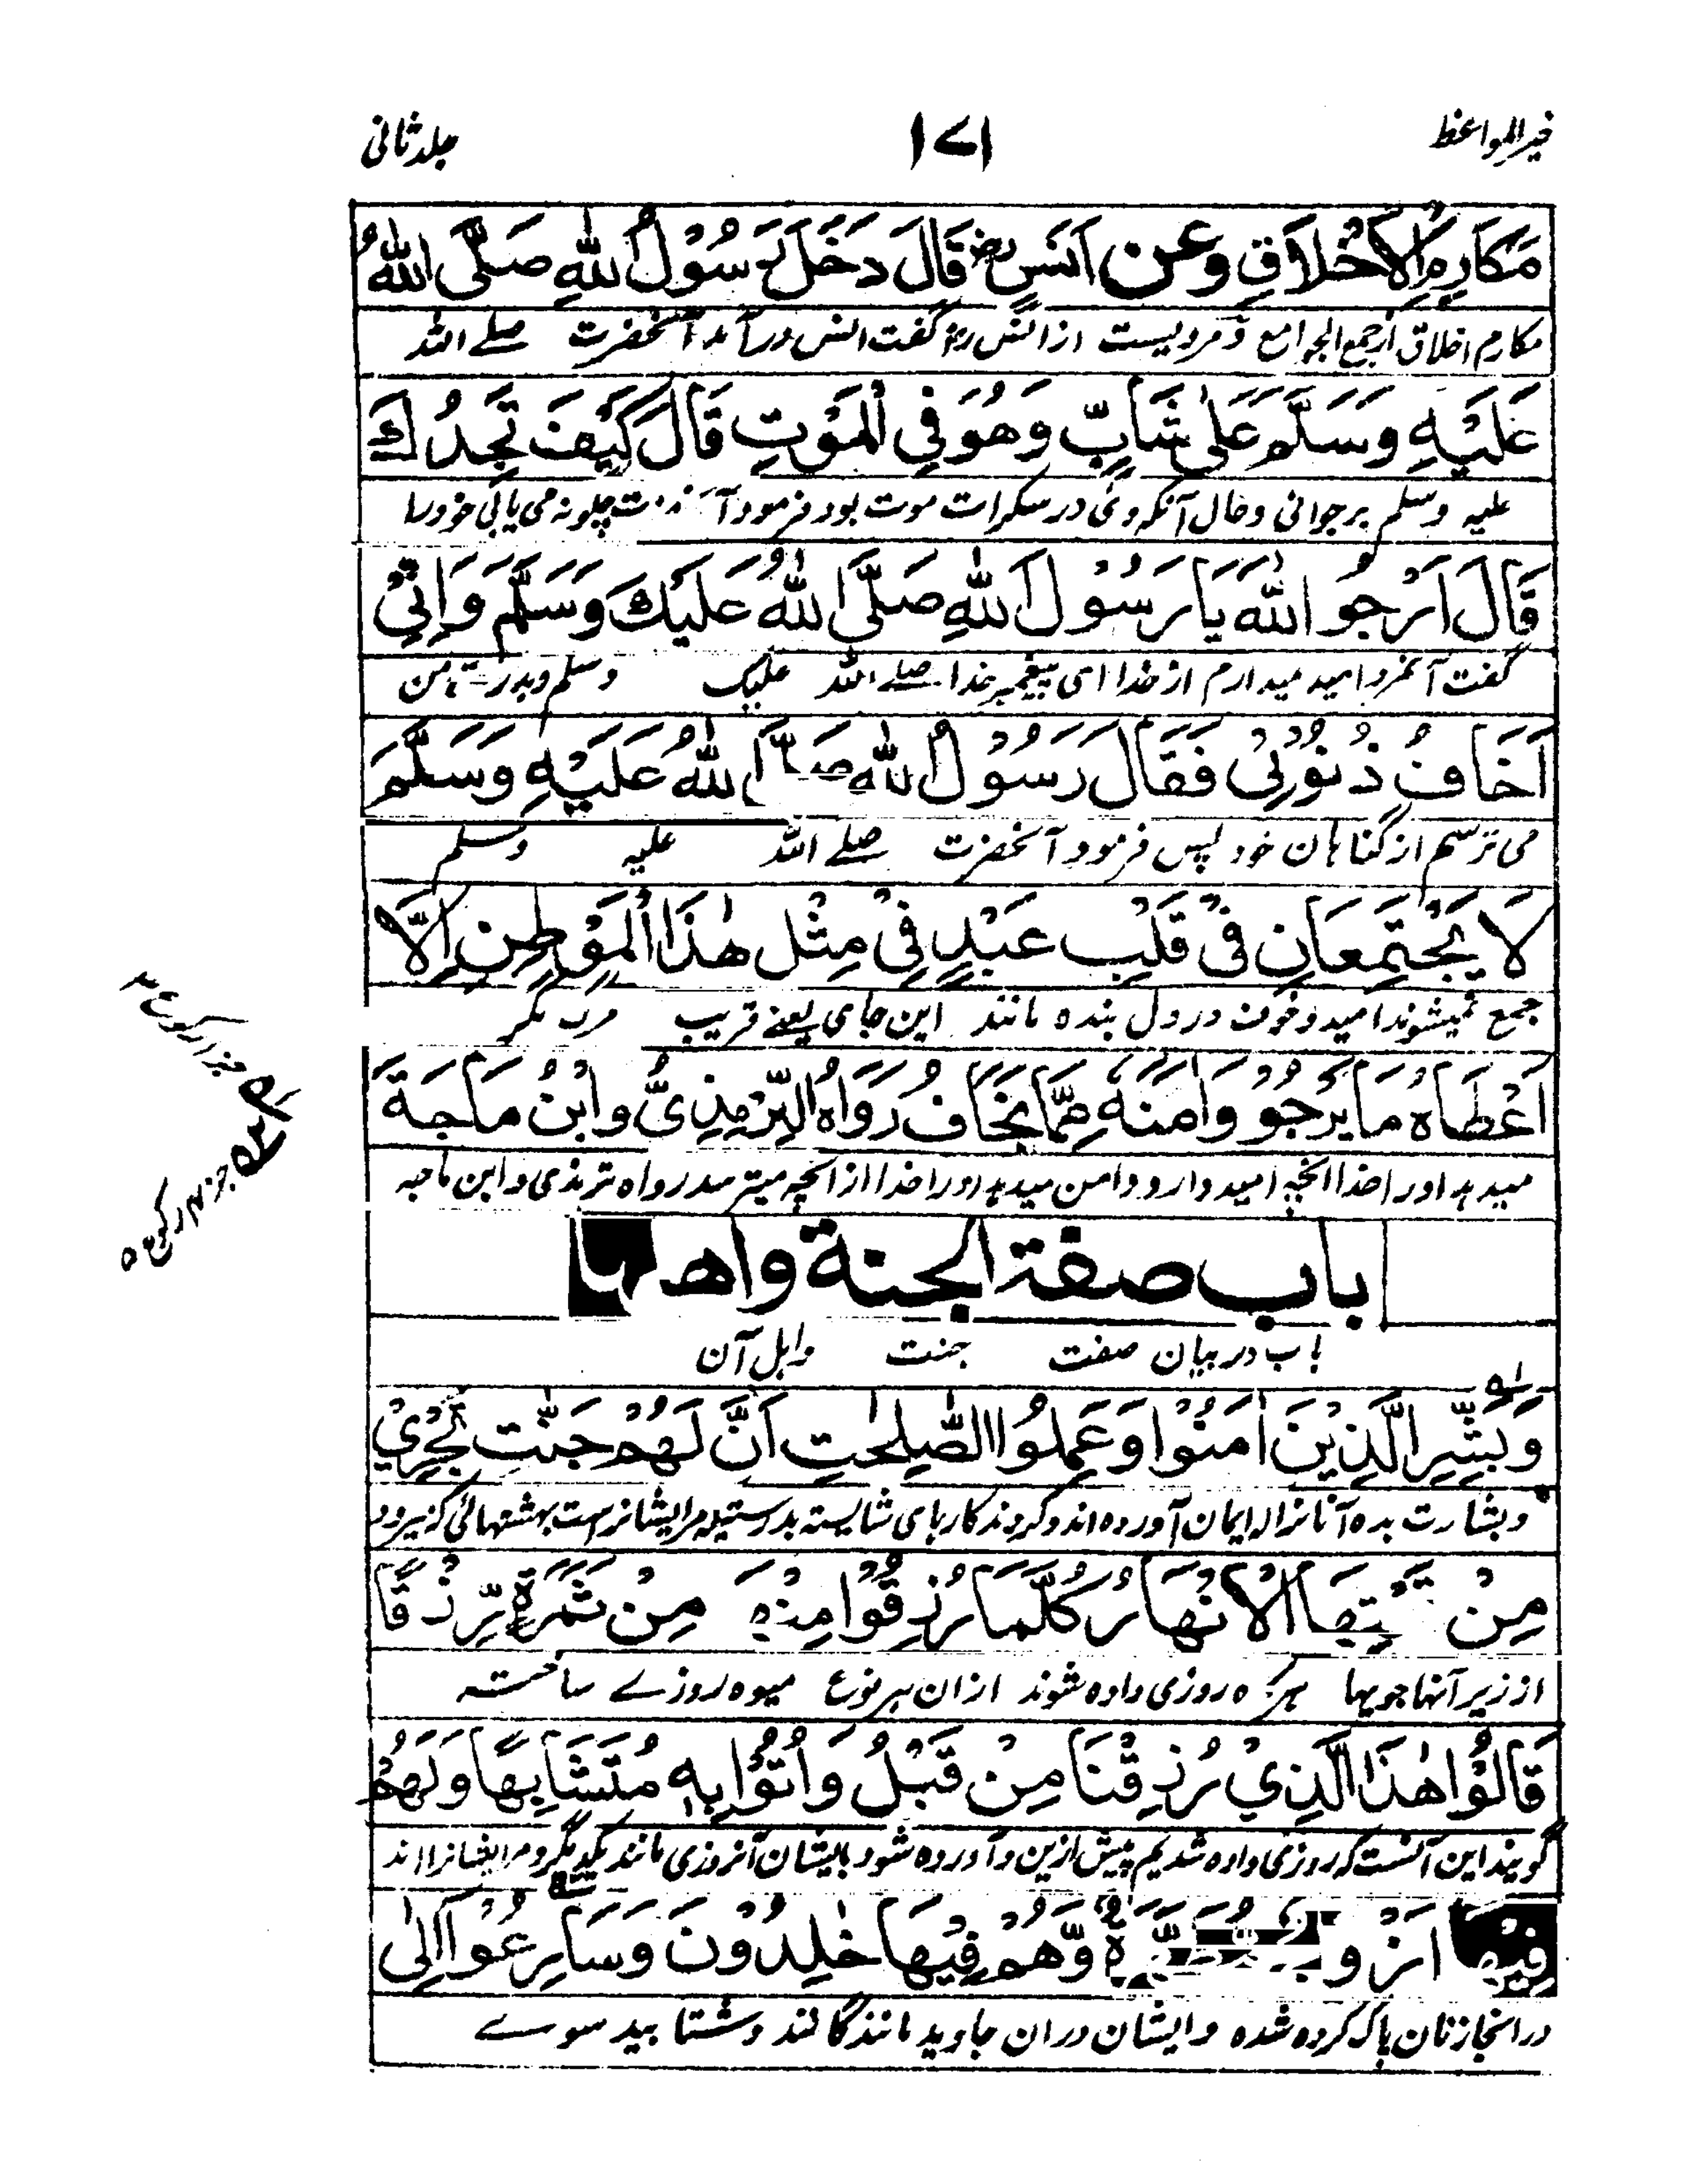 خیر المواعظ
۱۷۱
جلد ثانی
مَكَارِمِ الْاَخْلَاقِ وعن اَنَسٍ رض قَالَ دَخَلَ رَسُوْلُ اللّٰهِ صَلَّی اللّٰهُ
مکارم اخلاق از جمع الجوامع و مرویست از انس رض گفت انس درآمد آنحضرت صلے اللہ
عَلَیْهِ وَسَلَّمَ عَلٰی شَابٍّ وَهُوَ فِی الْمَوْتِ قَالَ کَیْفَ تَجِدُكَ
علیہ وسلم بر جوانی و حال آنکہ وی در سکرات موت بود فرمود چگونہ می یابی خود را
قَالَ اَرْجُو اللّٰهَ یَا رَسُوْلَ اللّٰهِ صَلَّی اللّٰهُ عَلَیْكَ وَسَلَّمَ وَاِنِّیْ
گفت آنمرد امید میدارم از خدا ای پیغمبر خدا صلے اللہ علیک وسلم و بدرستی من
اَخَافُ ذُنُوْبِیْ فَقَالَ رَسُوْلُ اللّٰهِ صَلَّی اللّٰهُ عَلَیْهِ وَسَلَّمَ
می ترسم از گناہان خود پس فرمود آنحضرت صلے اللہ علیہ وسلم
لَا یَجْتَمِعَانِ فِیْ قَلْبِ عَبْدٍ فِیْ مِثْلِ هٰذَا الْمَوْطِنِ اِلَّا
جمع نمیشوند امید و خوف در دل بندہ مانند این جای یعنے قریب مرگ مگر
اَعْطَاهُ مَا یَرْجُوْ وَاٰمَنَهٗ مِمَّا یَخَافُ رَوَاهُ التِّرْمِذِیُّ وابْنُ مَاجَةَ
میدہد اورا خدا آنچہ امید دارد و امن میدہد اورا خدا از آنچہ میترسد رواہ ترمذی و ابن ماجہ
باب صفة الجنة واهلها
باب در بیان صفت جنت و اہل آن
وَبَشِّرِ الَّذِیْنَ اٰمَنُوْا وَعَمِلُوا الصّٰلِحٰتِ اَنَّ لَهُمْ جَنّٰتٍ تَجْرِیْ
و بشارت بدہ آنانرا کہ ایمان آوردہ اند و کردند کارہای شایستہ بدرستیکہ مر ایشانراست بہشتہائی کہ میرود
مِنْ تَحْتِهَا الْاَنْهَارُ کُلَّمَا رُزِقُوْا مِنْهَا مِنْ ثَمَرَةٍ رِّزْقًا
از زیر آنہا جویہا ہرگاہ روزی دادہ شوند ازان ہر نوع میوہ روزے ساختہ
قَالُوْا هٰذَا الَّذِیْ رُزِقْنَا مِنْ قَبْلُ وَاُتُوْا بِهٖ مُتَشَابِهًا وَلَهُمْ
گویند این آنست کہ روزی دادہ شدیم پیش ازین و آوردہ شود بایشان آنروزی مانند یکدیگر و مر ایشانرا اند
فِیْهَا اَزْوَاجٌ مُّطَهَّرَةٌ وَّهُمْ فِیْهَا خٰلِدُوْنَ وَسَارِعُوْا اِلٰی
در آنجا زنان پاک کردہ شدہ و ایشان دران جاوید مانندگانند و شتابید سوے